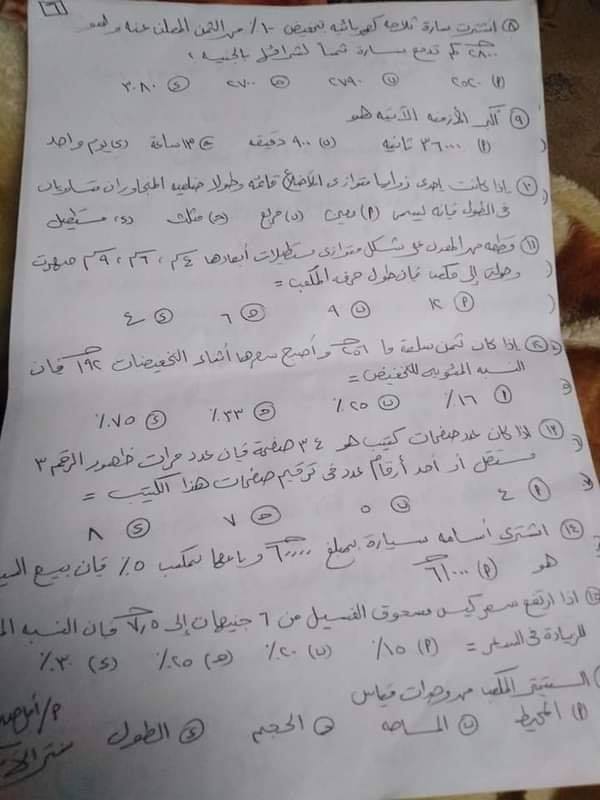 [٦]
٨ اشترت سارة ثلاجة كهربائية بتخفيض ١٠٪ من الثمن المعلن عنه وهو
٢٨٠٠ ج كم تدفع سارة ثمناً لشرائها بالجنيه ؟
أ) ٢٥٢٠ ب) ٢٧٩٠ ج) ٢٧٠٠ د) ٣٠٨٠
٩ أكبر الأزمنة الآتية هو
أ) ٣٦٠٠٠ ثانية ب) ٩٠٠ دقيقة ج) ١٣ ساعة د) يوم واحد
١٠ إذا كانت إحدى زوايا متوازى الأضلاع قائمة وطولا ضلعيه المتجاوران متساويان
فى الطول فإنه يسمى أ) معين ب) مربع ج) مثلث د) مستطيل
١١ قطعة من المعدن على شكل متوازى مستطيلات أبعادها ٤سم ، ٦سم ، ٩سم صهرت
وحولت إلى مكعب فإن طول حرف المكعب =
أ) ١٢ ب) ٩ ج) ٦ د) ٤
١٢ إذا كان ثمن سلعة ما ٢٥٦ ج وأصبح سعرها أثناء التخفيضات ١٩٢ ج فإن
النسبة المئوية للتخفيض =
أ) ١٦٪ ب) ٢٥٪ ج) ٣٣٪ د) ٧٥٪
١٣ إذا كان عدد صفحات كتيب هو ٣٤ صفحة فإن عدد مرات ظهور الرقم ٣
مستقل أو أحد أرقام عدد فى ترقيم صفحات هذا الكتيب =
أ) ٤ ب) ٥ ج) ٧ د) ٨
١٤ اشترى أسامه سيارة بمبلغ ٦٠٠٠٠ ج وباعها بمكسب ٥٪ فإن بيع
هو أ) ٦١٠٠٠ ج
١٥ اذا ارتفع سعر كيس مسحوق الغسيل من ٦ جنيهات إلى ٧,٥ ج فإن النسبه
للزيادة فى السعر = أ) ١٥٪ ب) ٢٠٪ ج) ٢٥٪ د) ٣٠٪
السنتيمتر المكعب من وحدات قياس
أ) المحيط ب) المساحه ج) الحجم د) الطول